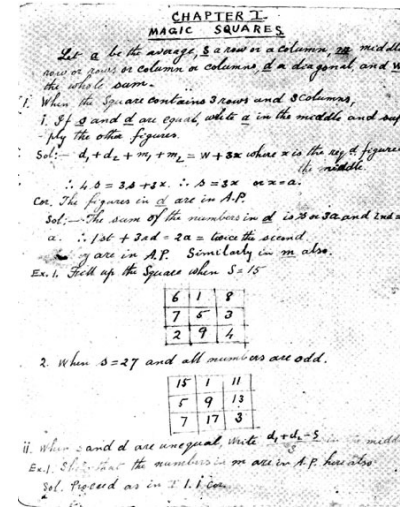 CHAPTER I.
MAGIC SQUARES
Let a be the average, S a row or a column, m middle
row or rows or column or columns, d a diagonal, and W
the whole sum.
1. When the square contains 3 rows and 3 columns,
i. If S and d are equal, write a in the middle and sup
-ply the other figures.
Sol:— d₁ + d₂ + m₁ + m₂ = W + 3x where x is the reqd figure
the middle.
∴ 4S = 3S + 3x. ∴ S = 3x or x = a.
Cor. The figures in d are in A.P.
Sol:— The sum of the numbers in d is S or 3a and 2nd =
a. ∴ 1st + 3rd = 2a = twice the second.
y are in A.P. Similarly in m also.
Ex. 1. Fill up the Square when S = 15
6 1 8
7 5 3
2 9 4
2. When S = 27 and all numbers are odd.
15 1 11
5 9 13
7 17 3
ii. When S and d are unequal, write d₁ + d₂ - S in midd
Ex. 1. the numbers in m are in A.P. here also
Sol. Proceed as in I 1. i cor.